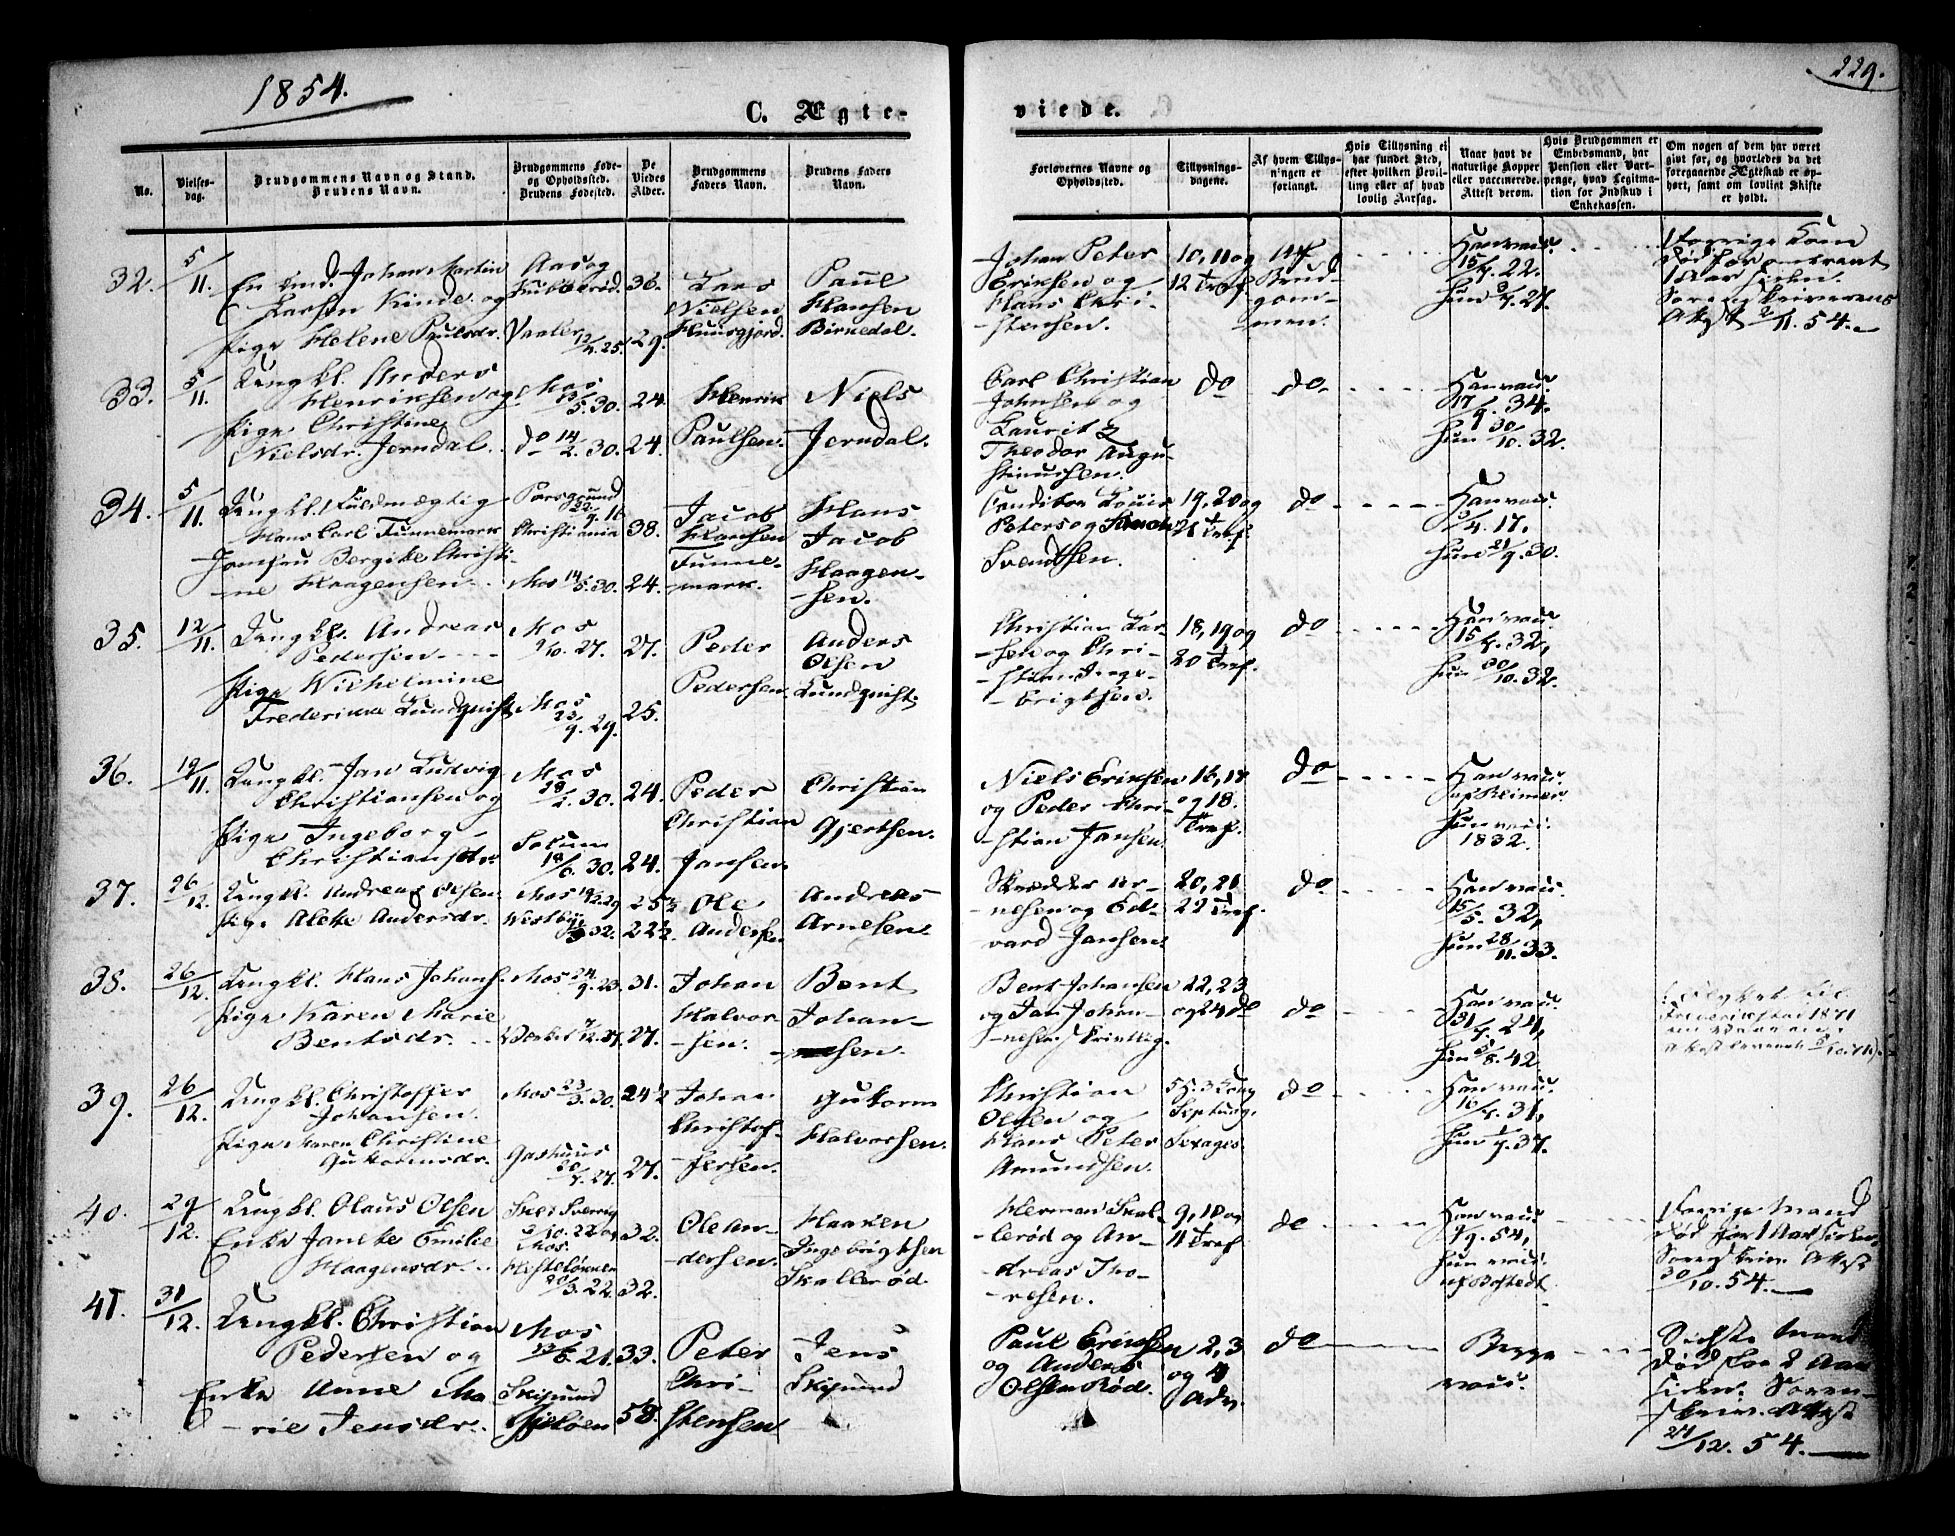 1854.
229.
C. Ægte-
viede.
No.
Vielses-
dag.
Brudgommens Navn og Stand.
Brudens Navn.
Brudgommens Føde-
og Opholdssted.
Brudens Fødested.
De
Viedes
Alder.
Brudgommens
Faders Navn.
Brudens Faders
Navn.
Forlovernes Navne og
Opholdssted.
Tillysnings-
dagene.
Af hvem Tillys-
ningen er
forlangt.
Hvis Tillysning ei
har fundet Sted,
efter hvilken Bevil-
ling eller af hvad
lovlig Aarsag.
Naar havt de
naturlige Kopper
eller vaccinerede.
Attest derom.
Hvis Brudgommen er
Embedsmand, har
Pension eller Vart-
penge, hvad Legitma-
tion for Indskud i
Enkekassen.
Om nogen af dem har været
gift før, og hvorledes da det
foregaaende Ægteskab er op-
hørt, samt om lovligt Skifte
er holdt.
32.
5/11.
Johan Martin
Larsen Kinde og
Pige Helene Paulsdr.
Vaaler 12/7.25.
36.
29.
Lars
Nielsen
Huusgjord.
Paul
Hansen
Birnedal.
Johan Peter
Eriksen og
Hans Chri-
stensen.
10, 11 og
12 Tref.
Brud-
gom-
men.
Han vacc.
15/7. 22.
Hun 3/7. 27.
Attest 2/11. 54.
33.
5/11.
Ungkl. Anders
Henriksen og
Pige Christine
Nielsdr. Jerndal.
Mos
13/5. 30.
do 14/2. 30.
24.
24.
Henrik
Paulsen.
Niels
Jerndal.
Carl Christian
Johnsen og
Lauritz
Theodor Augu-
stinussen.
do
do
Han vacc.
17/9. 34.
Hun 30/10. 32.
34.
5/11.
Ungkl. Fuldmægtig
Hans Carl Tunnemark
Jomfru Bergithe Christi-
ne Haagensen.
Porsgrund
22/9. 16
Christiania
Mos 14/5. 30.
38.
24.
Jacob
Hansen
Tunne-
mark.
Hans
Jacob
Haagen-
sen.
Peters og
Svendsen.
19, 20 og
21 Tref.
do
Han vacc.
5/4. 17.
Hun 21/9. 30.
35.
12/11.
Ungkl. Andreas
Pedersen
Pige Wilhelmine
Frederikke Lundquist
Mos
9/10. 27.
Mos
23/9. 29.
27.
25.
Peder
Pedersen.
Anders
Olsen
Lundquist.
Christian Lar-
sen og Chri-
stian
Erigtsen.
18, 19 og
20 Tref.
do
Han vacc.
15/7. 32.
Hun 30/10. 32.
36.
19/11.
Ungkl. Jan Ludvig
Christiansen og
Pige Ingeborg
Christiansdr.
Mos
28/2. 30.
Solum
18/6. 30.
24.
24.
Peder
Christian
Jansen.
Christian
Gjertsen.
Niels Eriksen
og Peder Chri-
stian Jansen.
16, 17
og 18.
Tref.
do
Han vacc.
af Reimers.
Hun vacc.
1832.
37.
26/12.
Ungkl. Andreas Olsen
Pige Alethe Andersdr.
Mos 19/2.29
Westby 32.
25½
22½.
Ole
Andersen.
Andreas
Arnesen.
Skrædder Ar-
nesen og Ed-
vard Jansen.
20, 21
22 Tref.
do
Han vacc.
15/5. 32,
Hun 28/11. 33.
38.
26/12.
Ungkl. Hans Johans.
Pige Karen Marie
Bentsdr.
Mos 24/9. 23.
Værket 7/12. 27.
31.
27.
Johan
Halvor-
sen.
Bent
Johan-
nesen.
Bent Johansen
og Jan Johan-
nesen
22, 23
og 24 do
do
Han vacc.
31/7. 24,
Hun 5/8. 42
Frederikstad 1871
39.
26/12.
Ungkl. Christoffer
Johansen.
Pige Maren Christine
Gulormsdr.
Mos 23/3. 30.
Gashuus
20/7. 27.
24½
27.
Johan
Christof-
fersen.
Gutorm
Halvorsen.
Christian
Olsen og
Hans Peter
Amundsen.
Septuag.
Sexages.
do
Han vacc.
16/7. 31,
Hun 1/7. 37.
40.
29/12.
Ungkl. Olaus Olsen
Enke Janike Emilie
Haagensdr.
22 og
Mos.
20/3. 22.
32.
32.
Ole An-
dersen.
Haaken
Ingebrigtsen
Skallerød.
Herman Skal-
lerød og An-
dreas Tho-
resen.
9, 10 og
11 Tref
do
Han vacc.
7/9. 54,
Hun vacc.
af Bofstedt.
Forrige Mand
død for 1 Aar siden.
Sorenskriv. Attest
30/10. 54.
41.
31/12.
Ungkl. Christian
Pedersen og
Enke Anne Ma-
rie Jensdr.
Mos
6. 21.
Skipsund
Gjeløen
33.
58.
Peter
Chri-
stensen
Jens
Skipsund
Paul Eriksen
og Anders
Olsen Rød.
2, 3
og 4
Adv.
do
Begge
vacc.
Sidste Mand
død for 2 Aar
siden. Soren-
skriv. Attest
21/12. 54.